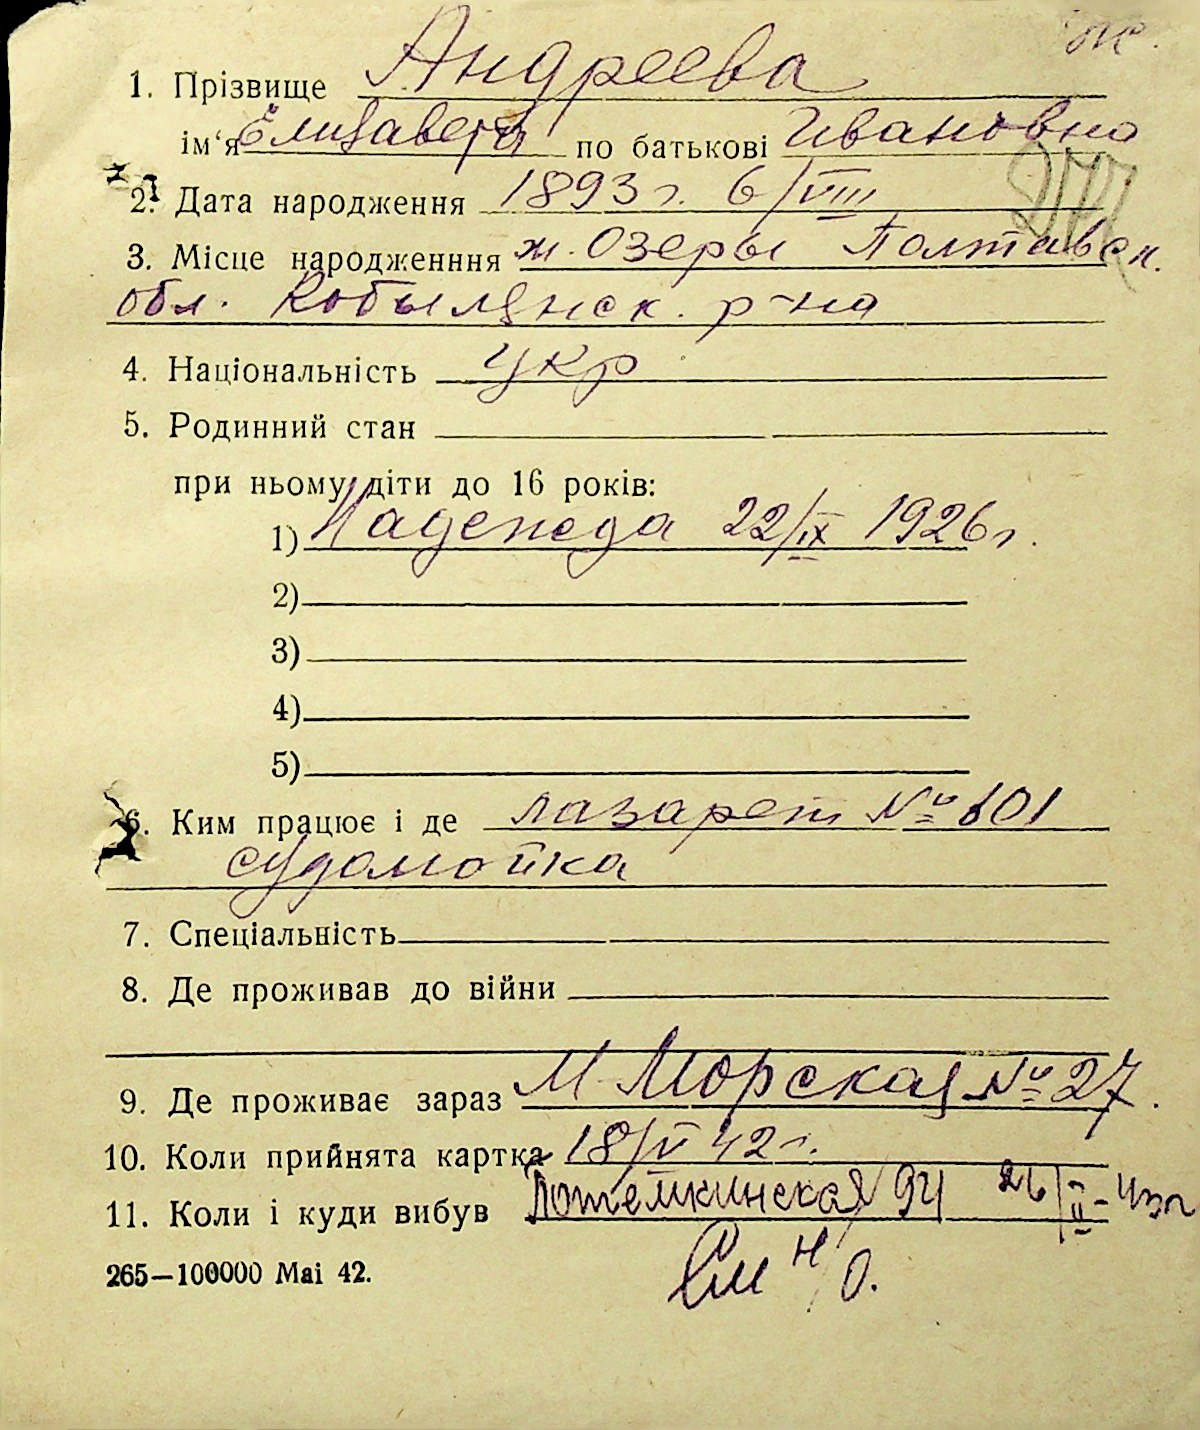 1. Прізвище Андреева
ім'я Елизавета по батькові Ивановна
277
2. Дата народження 1893 г. 6/VIII
3. Місце народженння м. Озеры Полтавск.
обл. Кобыляцск. р-на
4. Національність укр
5. Родинний стан
при ньому діти до 16 років:
1) Надежда 22/IX 1926 г.
2)
3)
4)
5)
6. Ким працює і де лазарет № 601
судомойка
7. Спеціальність
8. Де проживав до війни
9. Де проживає зараз М Морская № 27.
10. Коли прийнята картка 18/V 42 г.
11. Коли і куди вибув Потемкинская 94 26/II-43г
265—100000 Mai 42.
См н/о.